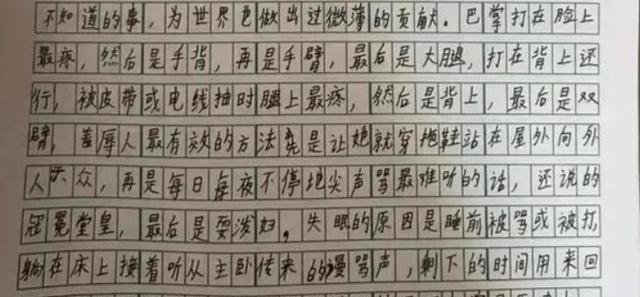 不知道的事，为世界也做出过微薄的贡献。巴掌打在脸上
最疼，然后是手背，再是手臂，最后是大腿，打在背上还
行，被皮带或电线抽时腿上最疼，然后是背上，最后是双
臂，羞辱人最有效的方法竟是让她就穿拖鞋站在屋外向外
人示众，再是每日每夜不停地尖声骂最难听的话，还说的
冠冕堂皇，最后是耍泼妇。失眠的原因是睡前被骂或被打，
躺在床上接着听从主卧传来的谩骂声，剩下的时间用来回